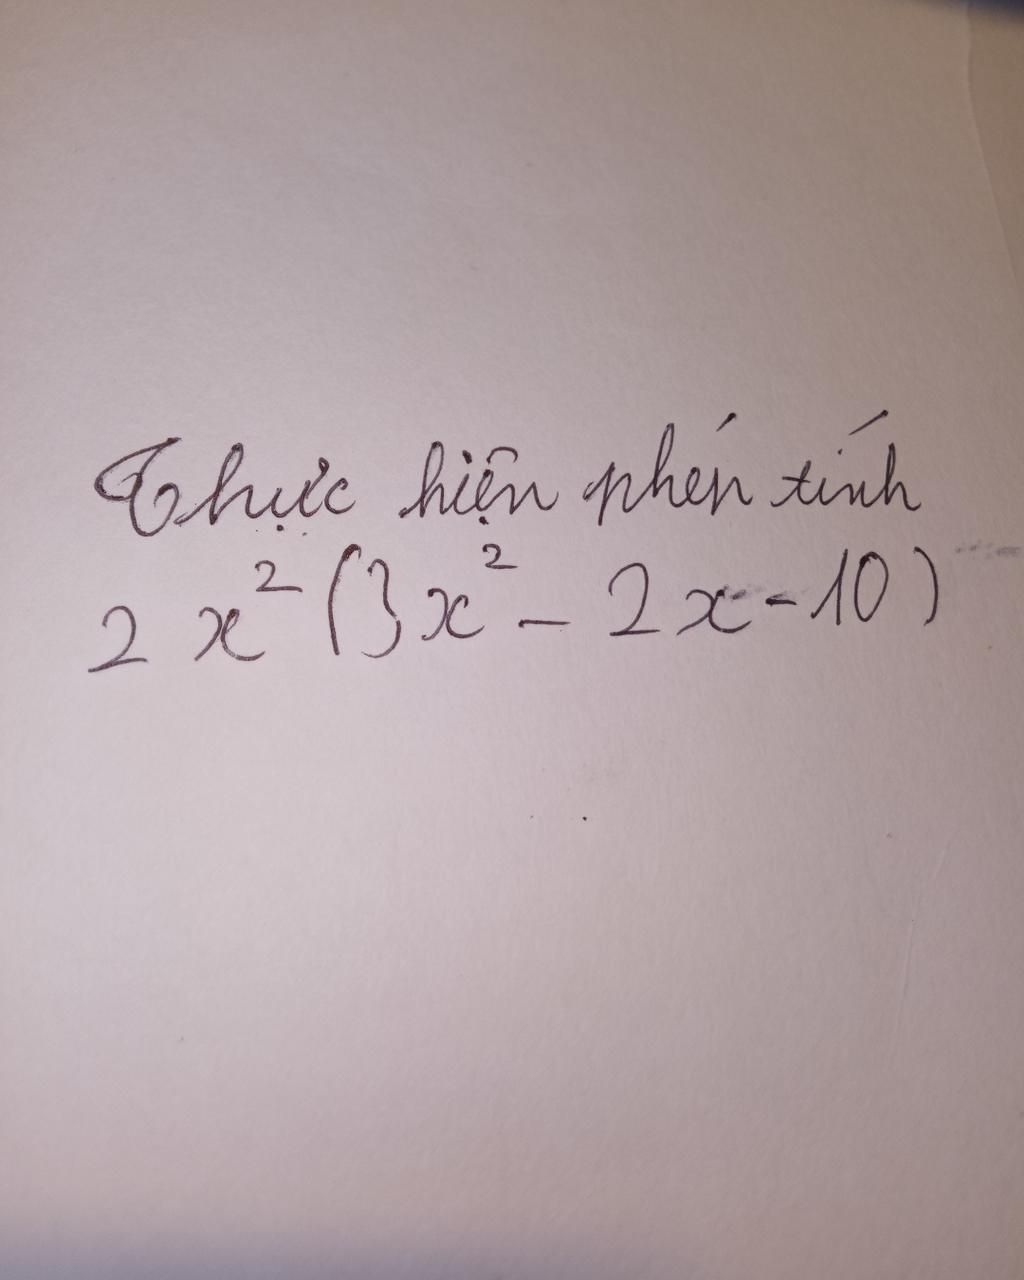 Thực hiện phép tính
2x²(3x² - 2x - 10)